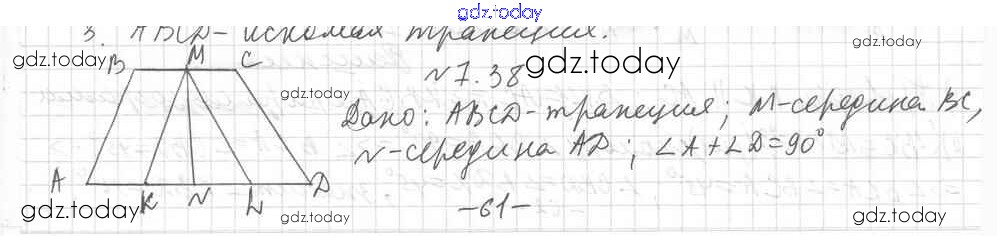 gdz.today
3. ABCD - искомая трапеция.
gdz.today
B M C
N7.38
gdz.today
gdz.today
Дано: ABCD-трапеция; M-середина BC,
N-середина AD; ∠A+∠D=90°
A K N L D
-61-
gdz.today
gdz.today
gdz.today
gdz.today